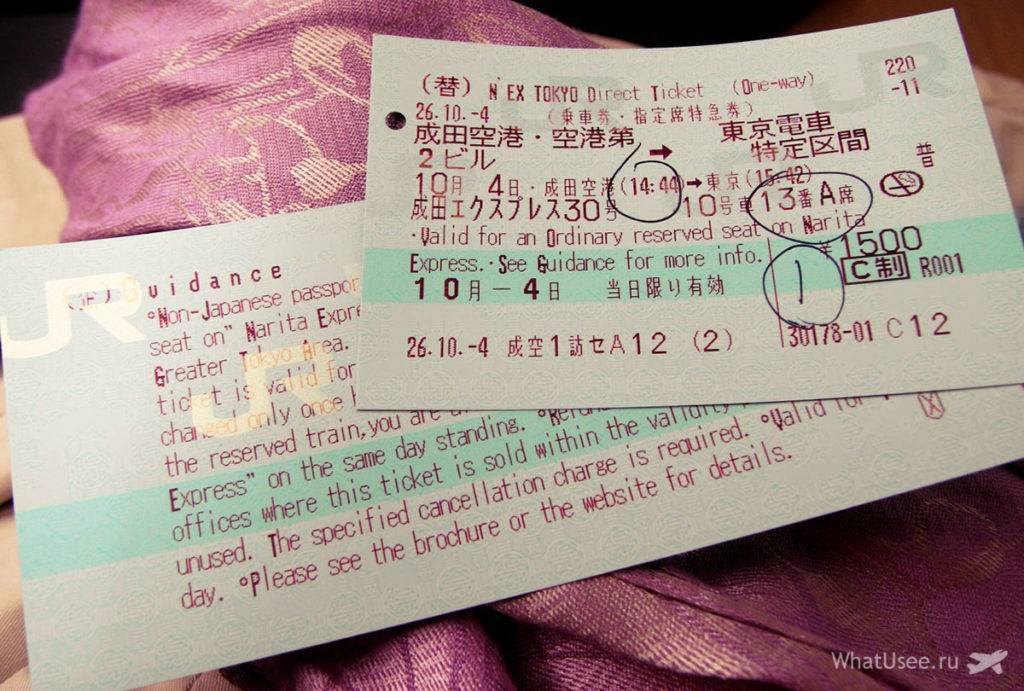 (替) N'EX TOKYO Direct Ticket (One-way)
220
-11
26.10.-4 (乗車券・指定席特急券)
成田空港・空港第 → 東京電車
2ビル 特定区間
普
10月 4日・成田空港(14:44)→東京(15:42)
成田エクスプレス30号 10号車 13番A席
・Valid for an Ordinary reserved seat on Narita
Express.・See Guidance for more info.
1
¥1500
C制 R001
10月-4日 当日限り有効
26.10.-4 成空1訪セA12 (2) 30178-01 C12
JR
Guidance
°Non-Japanese
seat on" Narita
Greater Tokyo Area.
ticket is valid for
changed only once
the reserved train, you are
Express" on the same day standing.
offices where this ticket is sold within the validity
unused. The specified cancellation charge is required. °Valid for
day. °Please see the brochure or the website for details.
WhatUsee.ru